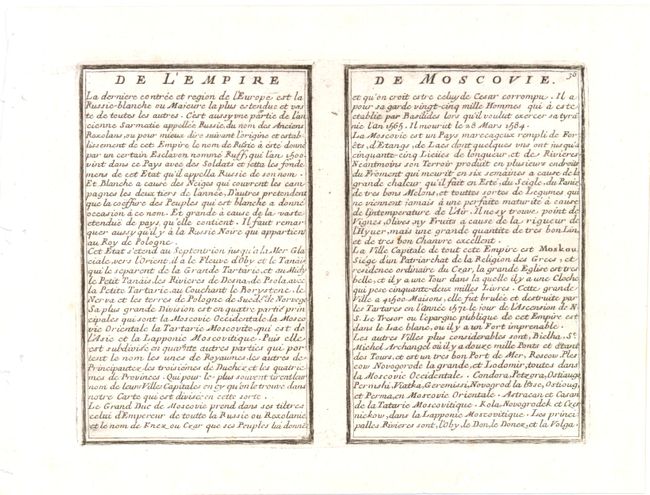 DE L'EMPIRE
La derniere contrée et region de l'Europe est la
Russie-blanche ou Maieure la plus estendue et vas
te de toutes les autres. C'est aussy me partie de l'an
cienne Sarmatie appellée Russie, du nom des Anciens
Roxolans ou pour mieux dire suivant l'origine et estab-
lissement de cet Empire le nom de Russie à esté donné
par un certain Esclavon nommé Russ, qui l'an 1500.
vint dans ce Pays avec des Soldats et jetta les fonde
mens de cet Etat qu'il appella Russie de son nom.
Et Blanche a cause des Neiges qui couvrent les cam
pagnes les deux tiers de l'année. D'autres pretendent
que la coëffure des Peuples qui est blanche a donné
occasion à ce nom. Et grande à cause de la vaste
etendue de pays qu'elle contient. Il faut remar
quer aussy qu'il y à la Russie Noire qui appartient
au Roy de Pologne.
Cet Etat s'etend au Septentrion jusqu'a la Mer Gla
ciale, vers l'Orient, il a le Fleuve d'Oby et le Tanais
qui le separent de la Grande Tartarie, et au Midy
le Petit Tanais, les Rivieres de Desna, de Psola, avec
la Petite Tartarie, au Couchant le Borystene, le
Nerva et les terres de Pologne de Sued. et le Norvege
Sa plus grande Division est en quatre partie prin
cipales qui sont la Moscovie Occidentale, la Mosco
vie Orientale la Tartarie Moscovite qui est de
l'Asie et la Lapponie Moscovitique. Puis elle
est subdivisée en quatre autres parties qui por
tent le nom les unes de Royaumes les autres de
Principautez, les troisiémes de Duchez, et les quatrié
mes de Provinces. Qui pour le plus souvent tirent leur
nom de leurs Villes Capitales en cy qu'on le trouve dans
notre Carte qui est divisée en cette sorte.
Le Grand Duc de Moscovie prend dans ses tiltres
celui d'Empereur de toutte la Russie ou Roxolanie
et le nom de Knez, ou Czar que ses Peuples lui donnēt
DE MOSCOVIE.
36
et qu'on croit estre celuy de Cesar corrompu. Il a
pour sa garde vingt-cinq mille Hommes qui à esté
etablie par Basilides lors qu'il voulut exercer sa tyrā
nie l'an 1565. Il mourut le 28 Mars 1584.
La Moscovie est un Pays marecageux rempli de For
êts, d'Etangs, de Lacs dont quelques uns ont jusqu'a
cinquante-cinq Lieües de longueur, et des Rivieres.
Neantmoins son Terroir produit en plusieurs endroits
du Froment qui meurit en six semaines a cause de la
grande chaleur qu'il fait en Esté, du Seigle, du Panic
de tres bons Melons, et touttes sortes de Legumes qui
ne viennent jamais à une parfaite maturité à cause
de l'intemperature de l'Air. Il ne s'y trouve point de
Vignes, Olives ny Fruits a cause de la rigueur de
l'Hyver, mais une grande quantité de tres bon Lin,
et de tres bon Chanvre excellent.
La Ville Capitale de tout cette Empire est Moskou,
Siége d'un Patriarchat de la Religion des Grecs, et
residence ordinaire du Czar, la grande Eglise est tres
belle, et il y a une Tour dans la quelle il y a une Cloche
qui pese cinquante-deux milles Livres. Cette grande
Ville a 41500 Maisons, elle fut brulée et destruite par
les Tartares en l'année 1571. le jour de l'Ascension de N.
S. Le Tresor ou l'epargne publique de cet Empire est
dans le Lac blanc, ou il y a un Fort imprenable.
Les autres Villes plus considerables sont, Bielha, St.
Michel Archangel où il y a douze mille Ponts et étant
des Tours, et est un tres bon Port de Mer, Rescow, Ples
cow, Novogorode la grande, et Lodomir, toutes dans
la Moscovie Occidentale. Condora, Petzora, Ostiouge
Permski, Viatka, Ceremissi, Novogrod la basse, Ostioug,
et Perma, en Moscovie Orientale. Astracan et Casan
de la Tatarie Moscovitique. Kola, Novogrodek et Czar
nickow, dans la Lapponie Moscovitique. Les princi
palles Rivieres sont, l'Oby, le Don, le Donez, et la Volga.